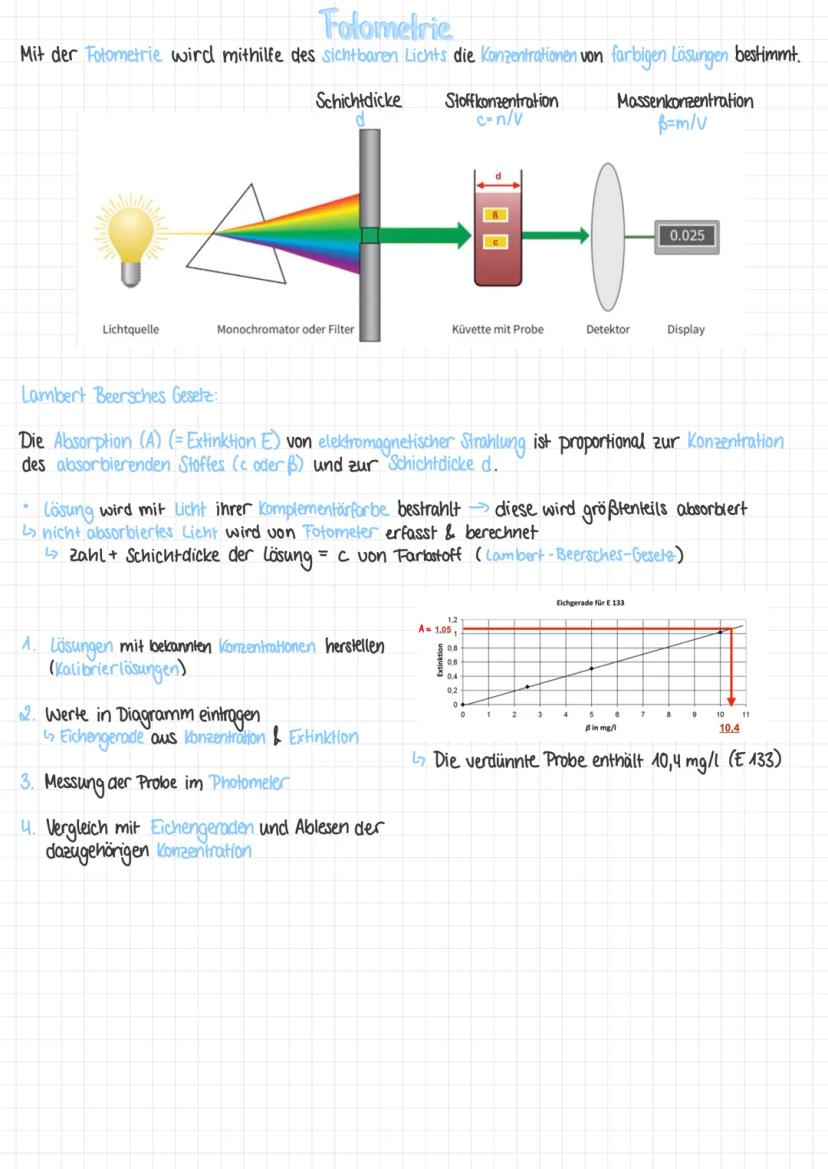 Fotometrie
Mit der Fotometrie wird mithilfe des sichtbaren Lichts die Konzentrationen von farbigen Lösungen bestimmt.
Schichtdicke Stoffkonzentration Massenkonzentration
d c=n/V β=m/V
d
ß
c
0.025
Lichtquelle Monochromator oder Filter Küvette mit Probe Detektor Display
Lambert Beersches Gesetz:
Die Absorption (A) (= Extinktion E) von elektromagnetischer Strahlung ist proportional zur Konzentration
des absorbierenden Stoffes (c oder β) und zur Schichtdicke d.
• Lösung wird mit Licht ihrer Komplementärfarbe bestrahlt → diese wird größtenteils absorbiert
↳ nicht absorbiertes Licht wird von Fotometer erfasst & berechnet
↳ zahl + Schichtdicke der Lösung = c von Farbstoff (Lambert-Beersches-Gesetz)
1. Lösungen mit bekannten Konzentrationen herstellen
(Kalibrierlösungen)
2. Werte in Diagramm eintragen
↳ Eichengerade aus Konzentration & Extinktion
3. Messung der Probe im Photometer
4. Vergleich mit Eichengeraden und Ablesen der
dazugehörigen Konzentration
Eichgerade für E 133
A = 1.05
Extinktion
1,2
1
0,8
0,6
0,4
0,2
0
0 1 2 3 4 5 6 7 8 9 10 11
β in mg/l
10.4
↳ Die verdünnte Probe enthält 10,4 mg/l (E 133)